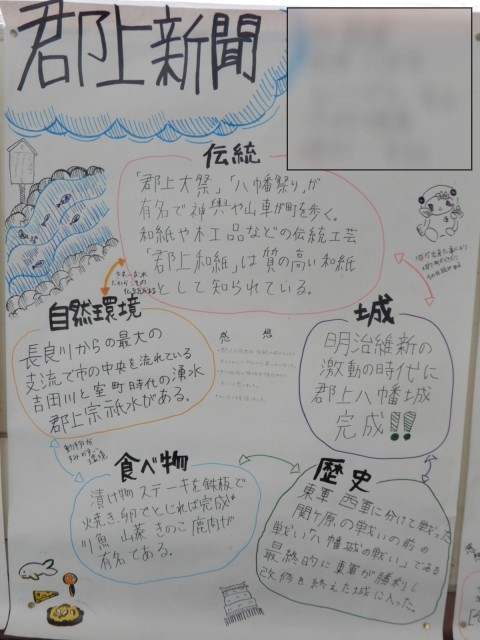 郡上新聞
伝統
「郡上大祭」「八幡祭り」が
有名で神輿や山車が町を歩く。
和紙や木工品などの伝統工芸
「郡上和紙」は質の高い和紙
として知られている。
自然環境
長良川からの最大の
支流で市の中央を流れている
吉田川と室町時代の湧水
郡上宗祇水がある。
感想
城
明治維新の
激動の時代に
郡上八幡城
完成!!
動物が
すみやすい
環境
食べ物
漬け物ステーキを鉄板で
焼き、卵でとじれば完成
川魚 山菜 きのこ 鹿肉が
有名である。
歴史
東軍 西軍に分けて戦った
関ヶ原の戦いの前の
戦い「八幡城の戦い」である
最終的に東軍が勝利し
改修を終えた城に入った。